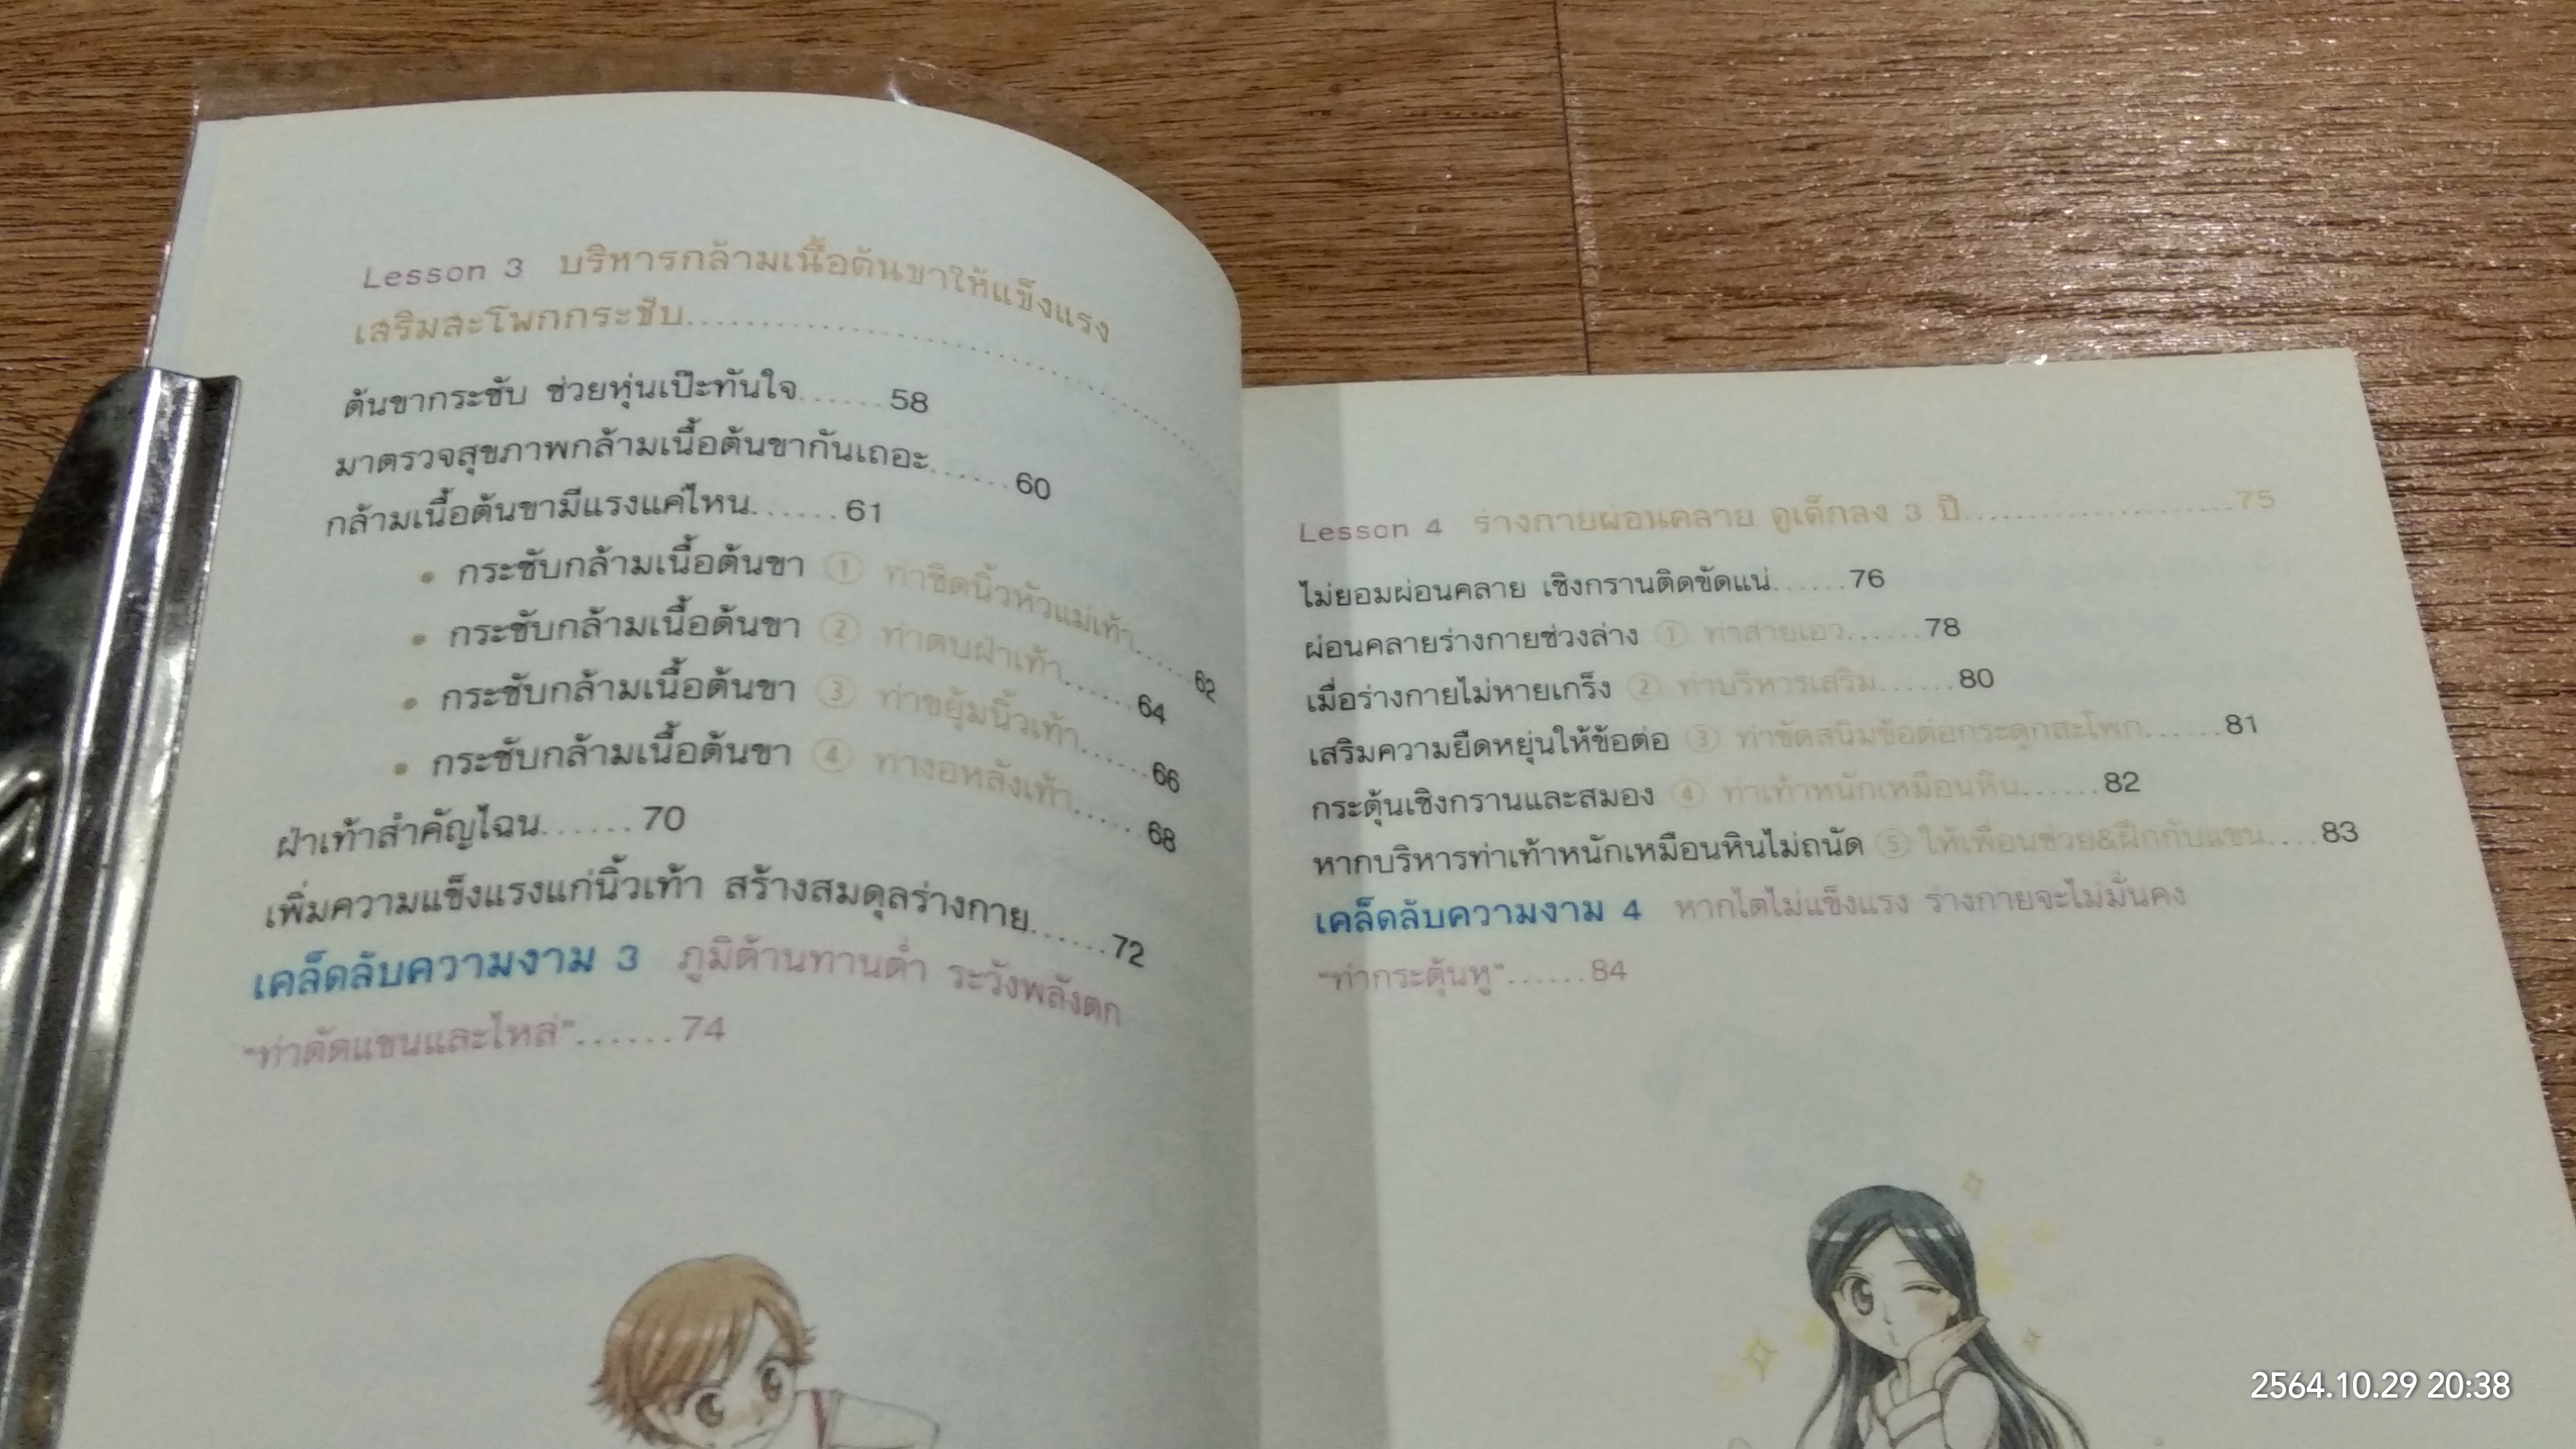 Lesson 3 บริหารกล้ามเนื้อต้นขาให้แข็งแรง
เสริมสะโพกกระชับ...............................
ต้นขากระชับ ช่วยหุ่นเป๊ะทันใจ.......58
มาตรวจสุขภาพกล้ามเนื้อต้นขากันเถอะ.......60
กล้ามเนื้อต้นขามีแรงแค่ไหน.......61
• กระชับกล้ามเนื้อต้นขา ① ท่าชิดนิ้วหัวแม่เท้า.......62
• กระชับกล้ามเนื้อต้นขา ② ท่าตบฝ่าเท้า.......64
• กระชับกล้ามเนื้อต้นขา ③ ท่าขยุ้มนิ้วเท้า.......66
• กระชับกล้ามเนื้อต้นขา ④ ท่างอหลังเท้า.......68
ฝ่าเท้าสำคัญไฉน.......70
เพิ่มความแข็งแรงแก่นิ้วเท้า สร้างสมดุลร่างกาย.......72
เคล็ดลับความงาม 3 ภูมิต้านทานต่ำ ระวังพลังตก
"ท่าดัดแขนและไหล่".......74
Lesson 4 ร่างกายผ่อนคลาย ดูเด็กลง 3 ปี.......................75
ไม่ยอมผ่อนคลาย เชิงกรานติดขัดแน่.......76
ผ่อนคลายร่างกายช่วงล่าง ① ท่าส่ายเอว.......78
เมื่อร่างกายไม่หายเกร็ง ② ท่าบริหารเสริม.......80
เสริมความยืดหยุ่นให้ข้อต่อ ③ ท่าขัดสนิมข้อต่อกระดูกสะโพก.......81
กระตุ้นเชิงกรานและสมอง ④ ท่าเท้าหนักเหมือนหิน.......82
หากบริหารท่าเท้าหนักเหมือนหินไม่ถนัด ⑤ ให้เพื่อนช่วย&ฝึกกับแขน....83
เคล็ดลับความงาม 4 หากไตไม่แข็งแรง ร่างกายจะไม่มั่นคง
"ท่ากระตุ้นหู".......84
2564.10.29 20:38